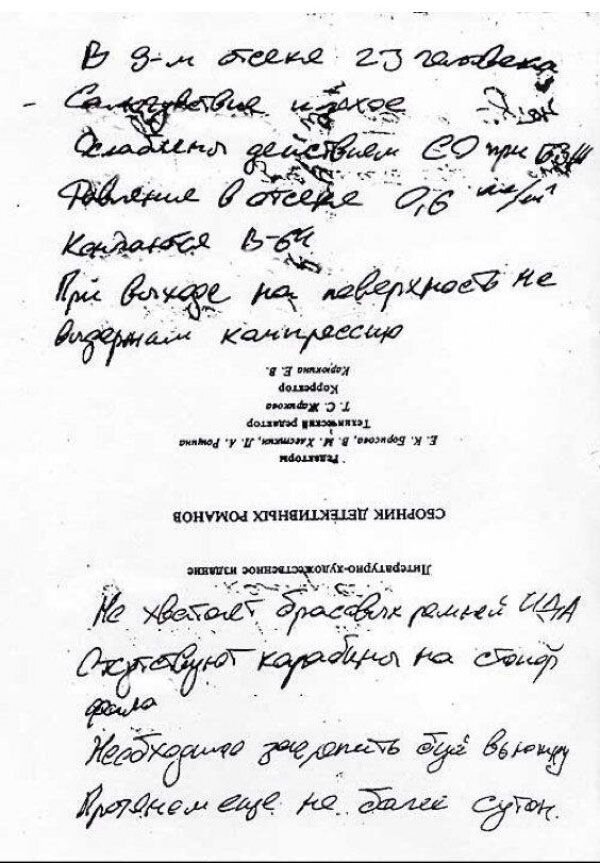 В 9-м отсеке 23 человека
Самочувствие плохое
Ослаблены действием СО при БЗЖ
Давление в отсеке 0,6 кг/см²
Кончаются В-64
При выходе на поверхность не
выдержим компрессию
Корюкина Е. В.
Корректор
Т. С. Жарикова
Технический редактор
Е. К. Борисова, В. М. Хлесткин, Л. А. Рощина
Редакторы
СБОРНИК ДЕТЕКТИВНЫХ РОМАНОВ
Литературно-художественное издание
Не хватает брасовых ремней ИДА
Отсутствуют карабины на стопор
фала
Необходимо закрепить буй вьюшку
Протянем еще не более суток.